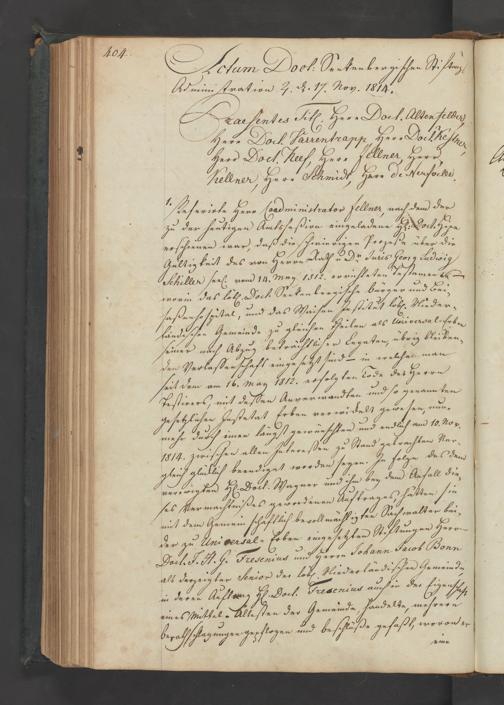 404.
Actum Doct. Senkenbergischen Stiftungs
Administration 2. d. 17. Nov. 1814.
Praesentes Tit. Herr Doct. Altenfelder,
Herr Doct. Varrentrapp, Herr Doct. Kestner,
Herr Doct. Neef, Herr Fellner, Herr
Kellner, Herr Schmidt, Herr de Neufville.
1. Referirte Herr Coadministrator Fellner, nach dem der
zu der heutigen Amts Session eingeladene H. Doct.
erschienen war, daß die Prozesse über die
Gültigkeit des von Herrn Juris Georg Ludwig
Schiller seel. vom 14. May 1812. errichteten Testaments
worin das löbl. Doct. Senkenbergische Bürger und Bei
saßenhospital, und das Waisen Institut löbl. Nieder
ländischer Gemeinde zu gleichen Theilen als Universal-Erben
seiner nach Abzug beträchtlicher Legaten, übrig bleiben
den Verlassenschaft eingesetzt sind, in welchen man
seit dem am 16. May 1812. erfolgten Tode des Herrn
Testirers mit dessen Anverwandten und so genannten
gesetzlichen Intestat Erben verwickelt gewesen, nun
mehr durch einen längst gewünschten und endlich am 10. Nov.
1814. zwischen allen Interessen zu Stand gebrachten Ver
gleich glücklich beendigt worden seyen. In folge des dem
verewigten H. Doct. Wagner und ihm bey dem Anfall die
ses Vermächtnißes gewordenen Auftrages hätten sie
mit dem Gemeinschaftlich bevollmächtigten Sachwalter bei
der zu Universal-Erben eingesetzten Stiftungen Herrn
Doct. J. H. G. Fresenius und Herrn Johann Jacob Bonn
als derzeitger Senior der löbl. Niederländischen Gemeinde
in deren Auftrag H. Doct. Fresenius auch in der Eigenschaft
eines Mittel-Ältesten der Gemeinde handelte, mehrere
berathschlagungen gepflogen und beschlüße gefaßt, wovon er
eine